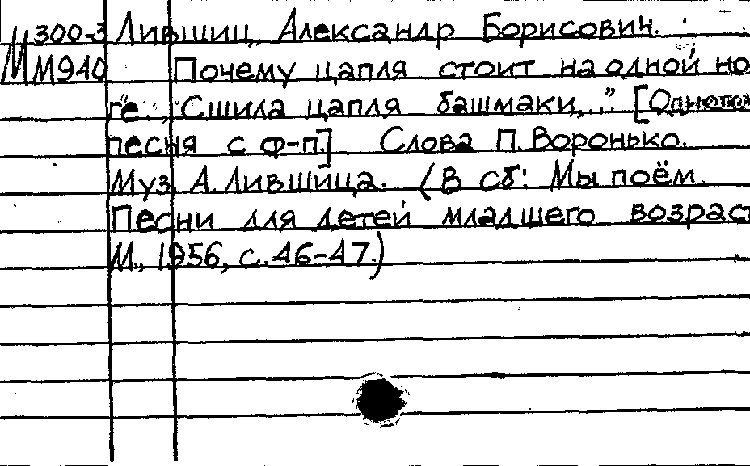 М 300-3 Лившиц, Александр Борисович.
М М940 Почему цапля стоит на одной но-
ге. „Сшила цапля башмаки,.." [Одногол.
песня с ф-п.] Слова П. Воронько.
Муз. А. Лившица. (В сб: Мы поём.
Песни для детей младшего возраст
М., 1956, с. 46-47.)